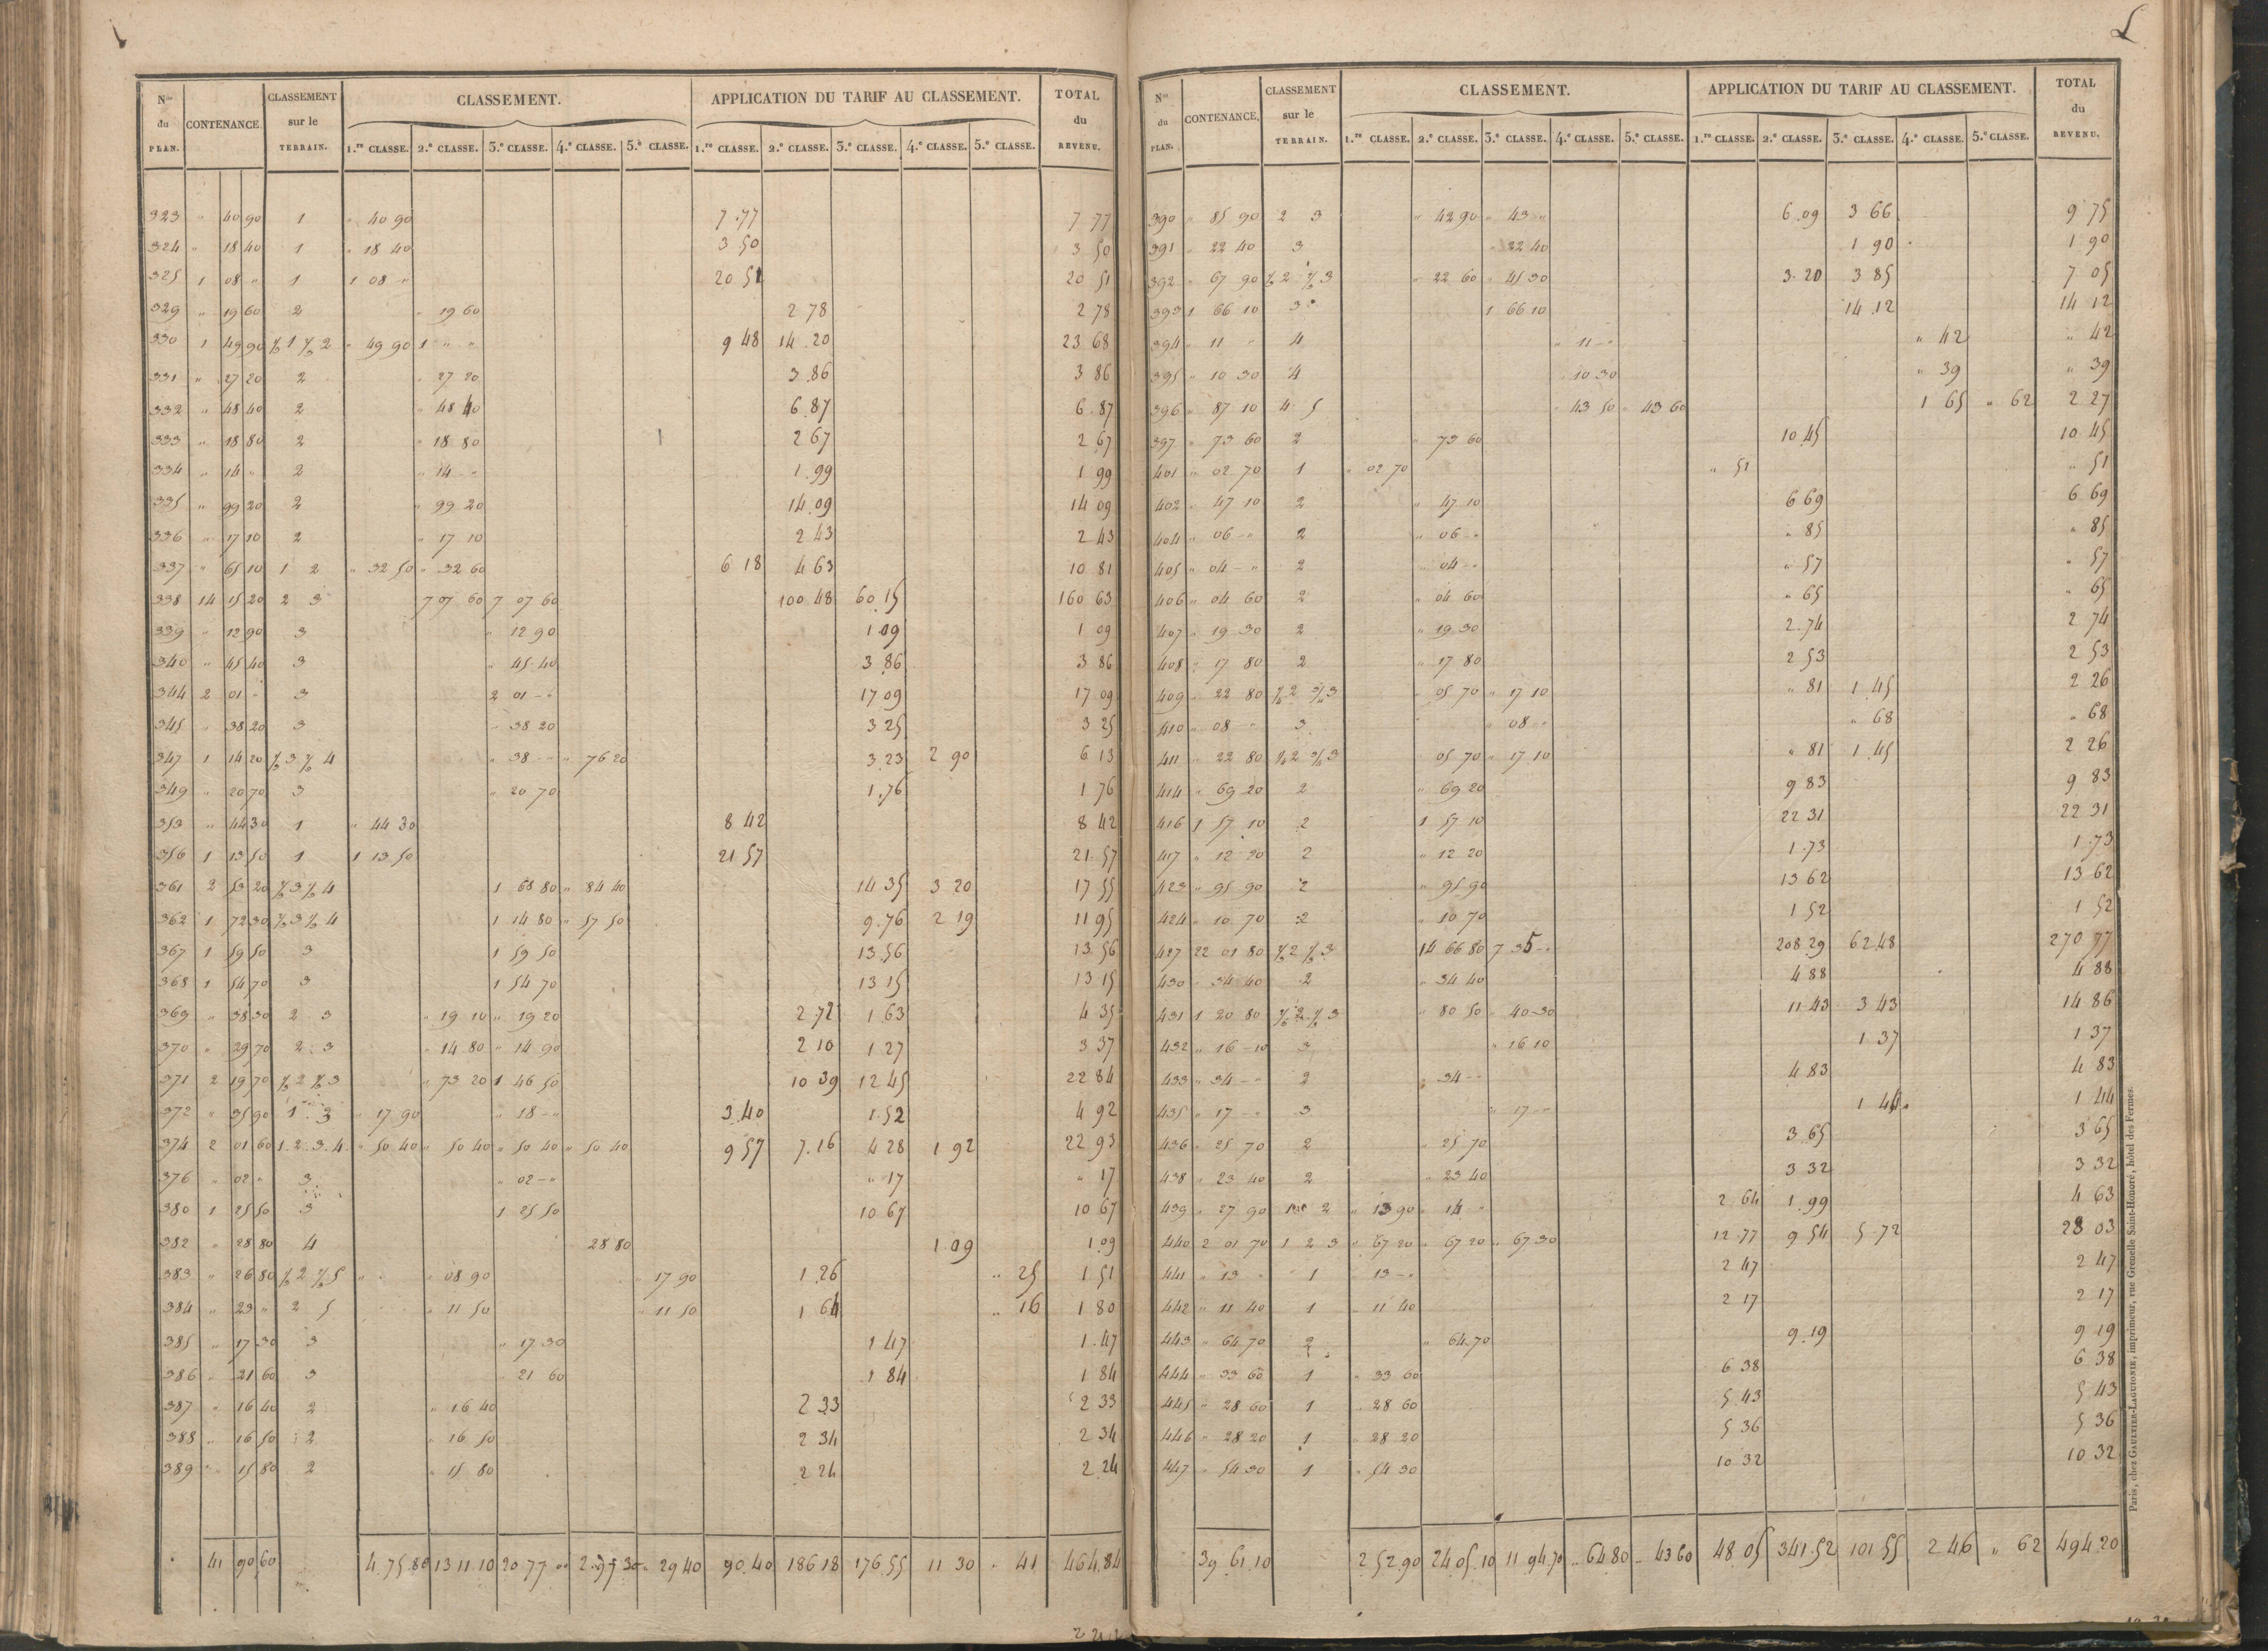 N.os du PLAN. CONTENANCE. CLASSEMENT sur le TERRAIN. CLASSEMENT. APPLICATION DU TARIF AU CLASSEMENT. TOTAL du REVENU.
1.re CLASSE. 2.e CLASSE. 3.e CLASSE. 4.e CLASSE. 5.e CLASSE. 1.re CLASSE. 2.e CLASSE. 3.e CLASSE. 4.e CLASSE. 5.e CLASSE.
323 " 40 90 1 " 40 90 7.77 7 77
324 " 18 40 1 " 18 40 3 50 3 50
325 1 08 " 1 1 08 " 20 51 20 51
329 " 19 60 2 " 19 60 2 78 2 78
330 1 49 90 1/3 1 2/3 2 " 49 90 1 " " 9 48 14.20 23 68
331 " 27 20 2 " 27 20 3.86 3 86
332 " 48 40 2 " 48 40 6.87 6.87
333 " 18 80 2 " 18 80 2 67 2 67
334 " 14 " 2 " 14 " 1.99 1 99
335 " 99 20 2 " 99 20 14.09 14 09
336 " 17 10 2 " 17 10 2 43 2 43
337 " 65 10 1 2 " 32 50 " 32 60 6 18 4 63 10 81
338 14 15 20 2 3 7 07 60 7 07 60 100 48 60.15 160 63
339 " 12 90 3 " 12 90 1 09 1 09
340 " 45 40 3 " 45 40 3 86 3 86
344 2 01 " 3 2 01 " 17 09 17 09
345 " 38 20 3 " 38 20 3 25 3 25
347 1 14 20 1/3 3 2/3 4 " 38 " " 76 20 3.23 2 90 6 13
349 " 20 70 3 " 20 70 1.76 1 76
353 " 44 30 1 " 44 30 8 42 8 42
356 1 13 50 1 1 13 50 21 57 21.57
361 2 53 20 2/3 3 1/3 4 1 68 80 " 84 40 14 35 3 20 17 55
362 1 72 30 2/3 3 1/3 4 1 14 80 " 57 50 9.76 2 19 11 95
367 1 59 50 3 1 59 50 13.56 13.56
368 1 54 70 3 1 54 70 13 15 13 15
369 " 38 30 2 3 " 19 10 " 19 20 2.72 1 63 4 35
370 " 29 70 2 3 " 14 80 " 14 90 2 10 1 27 3 37
371 2 19 70 1/3 2 2/3 3 " 73 20 1 46 50 10 39 12 45 22 84
372 " 35 90 1 3 " 17 90 " 18 " 3.40 1.52 4 92
374 2 01 60 1.2.3.4. " 50 40 " 50 40 " 50 40 " 50 40 9 57 7.16 4 28 1 92 22 93
376 " 02 " 3 " 02 " " 17 " 17
380 1 25 50 3 1 25 50 10 67 10 67
382 " 28 80 4 " 28 80 1 09 1.09
383 " 26 80 1/3 2 2/3 5 " 08 90 " 17 90 1.26 " 25 1 51
384 " 23 " 2 5 " 11 50 " 11 50 1 64 " 16 1 80
385 " 17 30 3 " 17 30 1 47 1.47
386 " 21 60 3 " 21 60 1 84 1 84
387 " 16 40 2 " 16 40 2 33 2 33
388 " 16 50 2 " 16 50 2 34 2 34
389 " 15 80 2 " 15 80 2 24 2.24
41 90 60 4.75.80 13 11.10 20.77 " 29 40 90.40 186 18 176.55 11 30 " 41 464.84
N.os du PLAN. CONTENANCE. CLASSEMENT sur le TERRAIN. CLASSEMENT. APPLICATION DU TARIF AU CLASSEMENT. TOTAL du REVENU.
1.re CLASSE. 2.e CLASSE. 3.e CLASSE. 4.e CLASSE. 5.e CLASSE. 1.re CLASSE. 2.e CLASSE. 3.e CLASSE. 4.e CLASSE. 5.e CLASSE.
390 " 85 90 2 3 " 42 90 " 43 " 6.09 3 66 9 75
391 " 22 40 3 " 22 40 1 90 1 90
392 " 67 90 1/3 2 2/3 3 " 22 60 " 45 30 3.20 3 85 7 05
393 1 66 10 3 1 66 10 14.12 14 12
394 " 11 " 4 " 11 " " 42 " 42
395 " 10 30 4 " 10 30 " 39 " 39
396 " 87 10 4 5 " 43 50 " 43 60 1 65 " 62 2 27
397 " 73 60 2 " 73 60 10.45 10 45
401 " 02 70 1 " 02 70 " 51 " 51
402 " 47 10 2 " 47 10 6 69 6 69
404 " 06 " 2 " 06 " " 85 " 85
405 " 04 " 2 " 04 " " 57 " 57
406 " 04 60 2 " 04 60 " 65 " 65
407 " 19 30 2 " 19 30 2.74 2 74
408 " 17 80 2 " 17 80 2 53 2 53
409 " 22 80 1/4 2 3/4 3 " 05 70 " 17 10 " 81 1.45 2 26
410 " 08 " 3 " 08 " " 68 " 68
411 " 22 80 1/4 2 3/4 3 " 05 70 " 17 10 " 81 1.45 2 26
414 " 69 20 2 " 69 20 9 83 9 83
416 1 57 10 2 1 57 10 22 31 22 31
417 " 12 20 2 " 12 20 1.73 1.73
423 " 95 90 2 " 95 90 13 62 13 62
424 " 10 70 2 " 10 70 1 52 1 52
427 22 01 80 2/3 2 1/3 3 14 66 80 7 35 " 208.29 62.48 270 77
430 " 34 40 2 " 34 40 4 88 4 88
431 1 20 80 2/3 2 1/3 3 " 80 50 " 40 30 11 43 3 43 14 86
432 " 16 10 3 " 16 10 1 37 1 37
433 " 34 " 2 " 34 " 4 83 4 83
435 " 17 " 3 " 17 " 1 44 1 44
436 " 25 70 2 " 25 70 3.65 3 65
438 " 23 40 2 " 23 40 3 32 3 32
439 " 27 90 2 " 13 90 " 14 " 2 64 1.99 4 63
440 2 01 70 1 2 3 " 67 20 " 67 20 " 67 30 12.77 9 54 5.72 28 03
441 " 13 " 1 " 13 " 2 47 2 47
442 " 11 40 1 " 11 40 2 17 2 17
443 " 64.70 2 " 64.70 9.19 9 19
444 " 33 60 1 " 33 60 6 38 6 38
445 " 28 60 1 " 28 60 5.43 5 43
446 " 28 20 1 " 28 20 5 36 5 36
447 " 54 30 1 " 54 30 10 32 10 32
39 61.10 2 52.90 24 05.10 11 94.70 " 64.80 " 43 60 48.05 341.52 101 55 2 46 " 62 494.20
Paris, chez GAULTIER-LAGUIONIE, imprimeur, rue Grenelle Saint-Honoré, hôtel des Fermes.